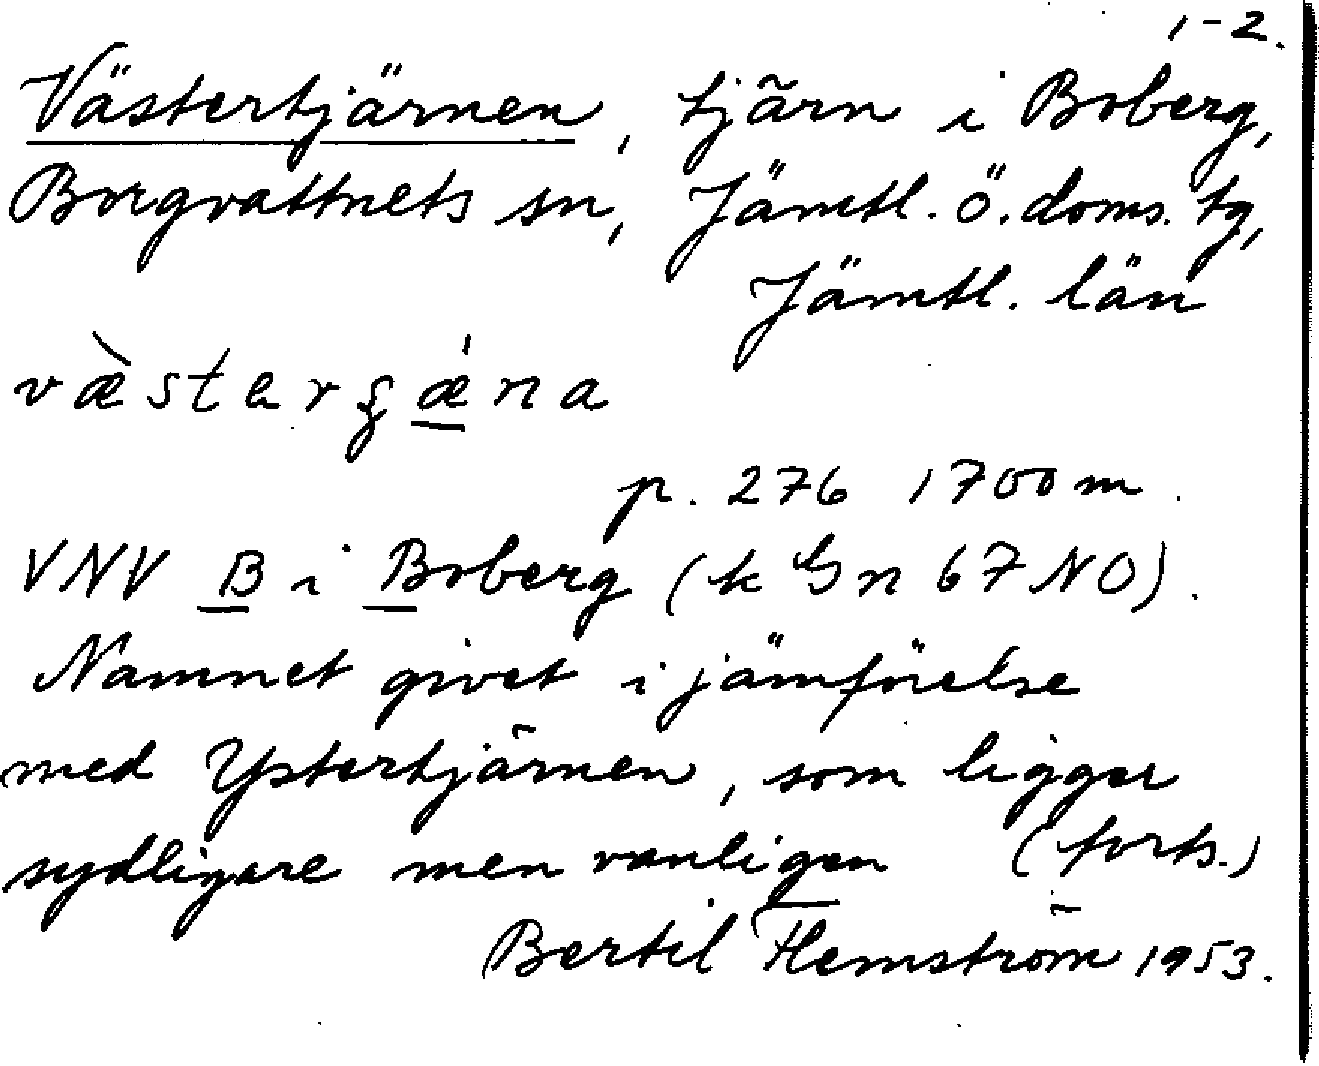 1-2.
Västertjärnen, tjärn i Boberg,
Borgvattnets sn, Jämtl. ö. doms. tg,
Jämtl. län
p. 276 1700 m.
VNV B i Boberg (k Gn 67 NO).
Namnet givet i jämförelse
med Ystertjärnen, som ligger
sydligare men vanligen (forts.)
Bertil Flemström 1953.